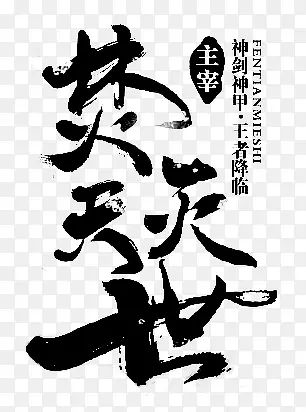 焚天灭世
主宰
神剑神甲·王者降临
FENTIANMIESHI